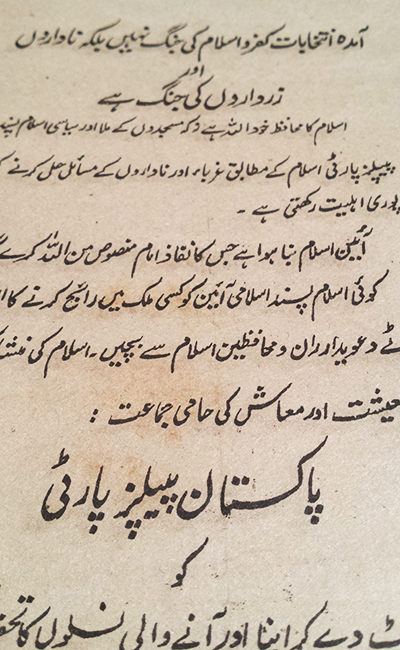 آمدہ انتخابات کفر و اسلام کی جنگ نہیں بلکہ ناداروں
اور
زرداروں کی جنگ ہے
اسلام کا محافظ خود اللہ ہے نہ کہ مسجدوں کے ملا اور سیاسی اسلام پسند
پیپلز پارٹی اسلام کے مطابق غرباء اور ناداروں کے مسائل حل کرنے
پوری اہلیت رکھتی ہے ۔
آئین اسلام بنا ہوا ہے جس کا نفاذ امام منصوص من اللہ کرے
کوئی اسلام پسند اسلامی آئین کو کسی ملک میں رائج کرنے کا
دعویداران و محافظین اسلام سے بچیں ۔ اسلام کی
معیشت اور معاش کی حامی جماعت :
پاکستان پیپلز پارٹی
کو
دے کر اپنا اور آنے والی نسلوں کا